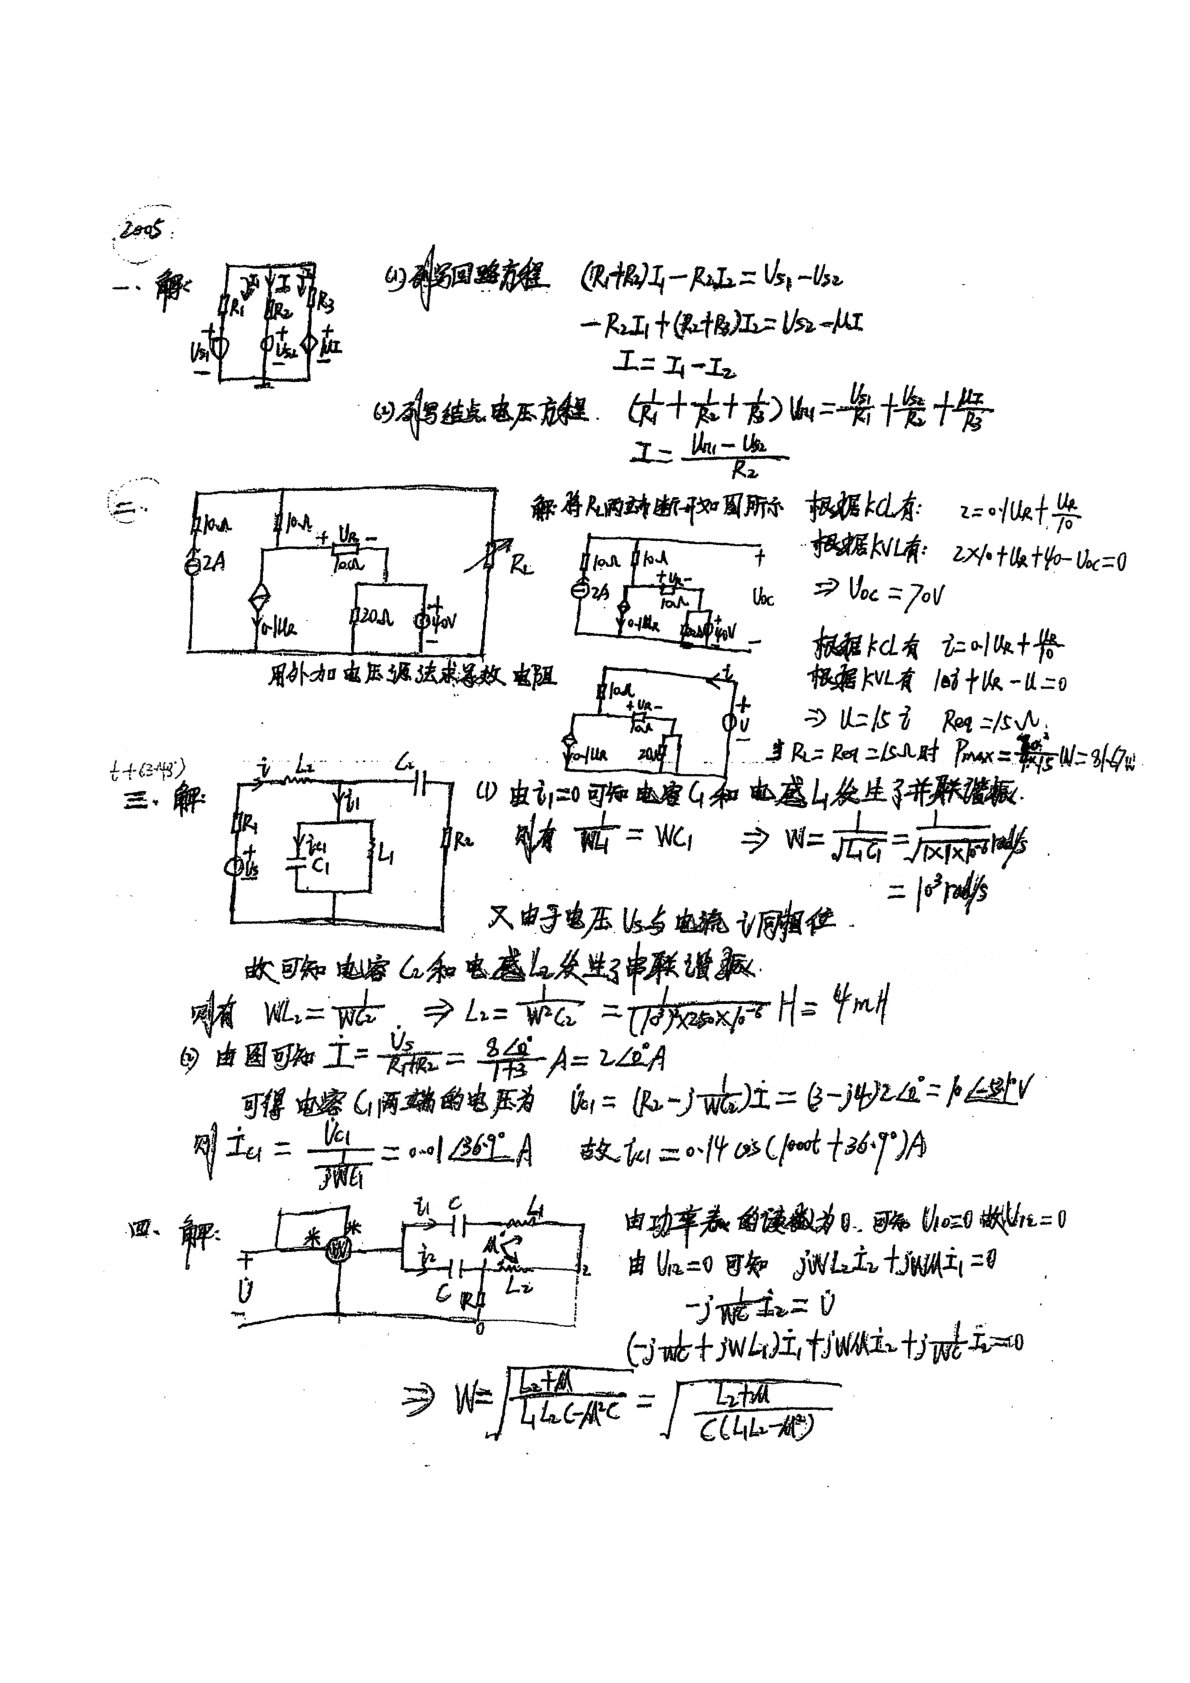 2005
一、解:
R1 R2 R3
US1 US2 μI
(1) 列写回路方程 (R1+R2)I1-R2I2=US1-US2
-R2I1+(R2+R3)I2=US2-μI
I=I1-I2
(2) 列写结点电压方程. (1/R1+1/R2+1/R3)Un1=US1/R1+US2/R2+μI/R3
I=(Un1-US2)/R2
二.
10Ω 10Ω + UR - 10Ω 2A 0.1UR 20Ω 40V RL
解:将RL两端断开如图所示
10Ω 10Ω + UR - 10Ω 2A 0.1UR 40V + UOC -
根据KCL有: 2=0.1UR+UR/10
根据KVL有: 2×10+UR+40-UOC=0
⇒ UOC=70V
用外加电压源法求等效电阻
10Ω + UR - 10Ω 0.1UR 20Ω i + U -
根据KCL有 i=0.1UR+UR/10
根据KVL有 10i+UR-U=0
⇒ U=15i Req=15Ω
当RL=Req=15Ω时 Pmax=
三、解:
i L2 C2 R1 i1 iC1 C1 L1 R2 US
(1) 由i1=0可知电容C1和电感L1发生了并联谐振.
则有 1/WL1=WC1 ⇒ W=1/√L1C1=1/√1×1×10-6 rad/s
=10³rad/s
又由于电压US与电流i同相位.
故可知电容C2和电感L2发生了串联谐振.
则有 WL2=1/WC2 ⇒ L2=1/W²C2=1/(10³)²×250×10-6 H=4mH
(2) 由图可知 İ=U̇S/(R1+R2)=8∠0°/(1+3) A=2∠0°A
可得电容C1两端的电压为 U̇C1=(R2-j1/WC2)İ=(3-j4)2∠0°=10∠-53.1°V
则 İC1=U̇C1/(1/jWC1)=0.01∠36.9°A 故iC1=0.14cos(1000t+36.9°)A
四、解:
* * W + U̇ - i1 C L1 M i2 C L2 R 2 0
由功率表的读数为0.可知U10=0故U12=0
由U12=0可知 jWL2İ2+jWMİ1=0
-j1/WC İ2=U̇
(-j1/WC+jWL1)İ1+jWMİ2+j1/WC İ2=0
⇒ W=√(L2+M)/(L1L2C-M²C)=√(L2+M)/C(L1L2-M²)